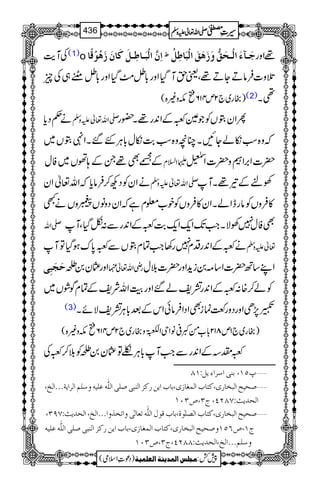 سیرتِ مصطفیٰ صلی اللہ تعالیٰ علیہ وسلم 436
تھے اور جَآءَ الْحَقُّ وَزَهَقَ الْبَاطِلُ ؕ اِنَّ الْبَاطِلَ كَانَ زَهُوْقًا ۝(1) کی آیت
تلاوت فرماتے جاتے تھے، یعنی حق آگیا اور باطل مٹ گیا اور باطل مٹنے ہی کی چیز
تھی۔(2) (بخاری ج۲ ص۶۱۴ فتح مکہ وغیرہ)
پھر ان بتوں کو جو عین کعبہ کے اندر تھے۔ حضور صلی اللہ تعالیٰ علیہ وسلم نے حکم دیا
کہ وہ سب نکالے جائیں۔ چنانچہ وہ سب بت نکال باہر کئے گئے۔ انہی بتوں میں
حضرت ابراہیم و حضرت اسمٰعیل علیہما السلام کے مجسمے بھی تھے جن کے ہاتھوں میں فال
کھولنے کے تیر تھے۔ آپ صلی اللہ تعالیٰ علیہ وسلم نے ان کو دیکھ کر فرمایا کہ اللہ تعالیٰ ان
کافروں کو مار ڈالے۔ ان کافروں کو خوب معلوم ہے کہ ان دونوں پیغمبروں نے کبھی بھی
فال نہیں کھولا۔ جب تک ایک ایک بت کعبہ کے اندر سے نہ نکل گیا، آپ صلی اللہ
تعالیٰ علیہ وسلم نے کعبہ کے اندر قدم نہیں رکھا جب تمام بتوں سے کعبہ پاک ہو گیا تو آپ
اپنے ساتھ حضرت اسامہ بن زید اور حضرت بلال رضی اللہ تعالیٰ عنہما اور عثمان بن طلحہ حجبی
کو لے کر خانہ کعبہ کے اندر تشریف لے گئے اور بیت اللہ شریف کے تمام گوشوں میں
تکبیر پڑھی اور دو رکعت نماز بھی ادا فرمائی اس کے بعد باہر تشریف لائے۔(3)
(بخاری ج۱ ص۲۱۸ باب من کبر فی نواحی الکعبة و بخاری ج۲ ص۶۱۴ فتح مکہ وغیرہ)
کعبہ مقدسہ کے اندر سے جب آپ باہر نکلے تو عثمان بن طلحہ کو بلا کر کعبہ کی
پ۱۵، بنی اسراءیل:۸۱
صحیح البخاری،کتاب المغازی،باب این رکز النبی صلی اللّٰہ علیه وسلم الرایة...الخ،
الحدیث:۴۲۸۷،ج۳،ص۱۰۳
صحیح البخاری،کتاب الصلوة،باب قول اللّٰه تعالٰی واتخذوا...الخ، الحدیث:۳۹۷،
ج۱،ص۱۵۶وصحیح البخاری،کتاب المغازی،باب این رکز النبی صلی اللّٰه علیه
وسلم...الخ،الحدیث:۴۲۸۸،ج۳،ص۱۰۳
پیش کش: مجلس المدینة العلمیة (دعوتِ اسلامی)